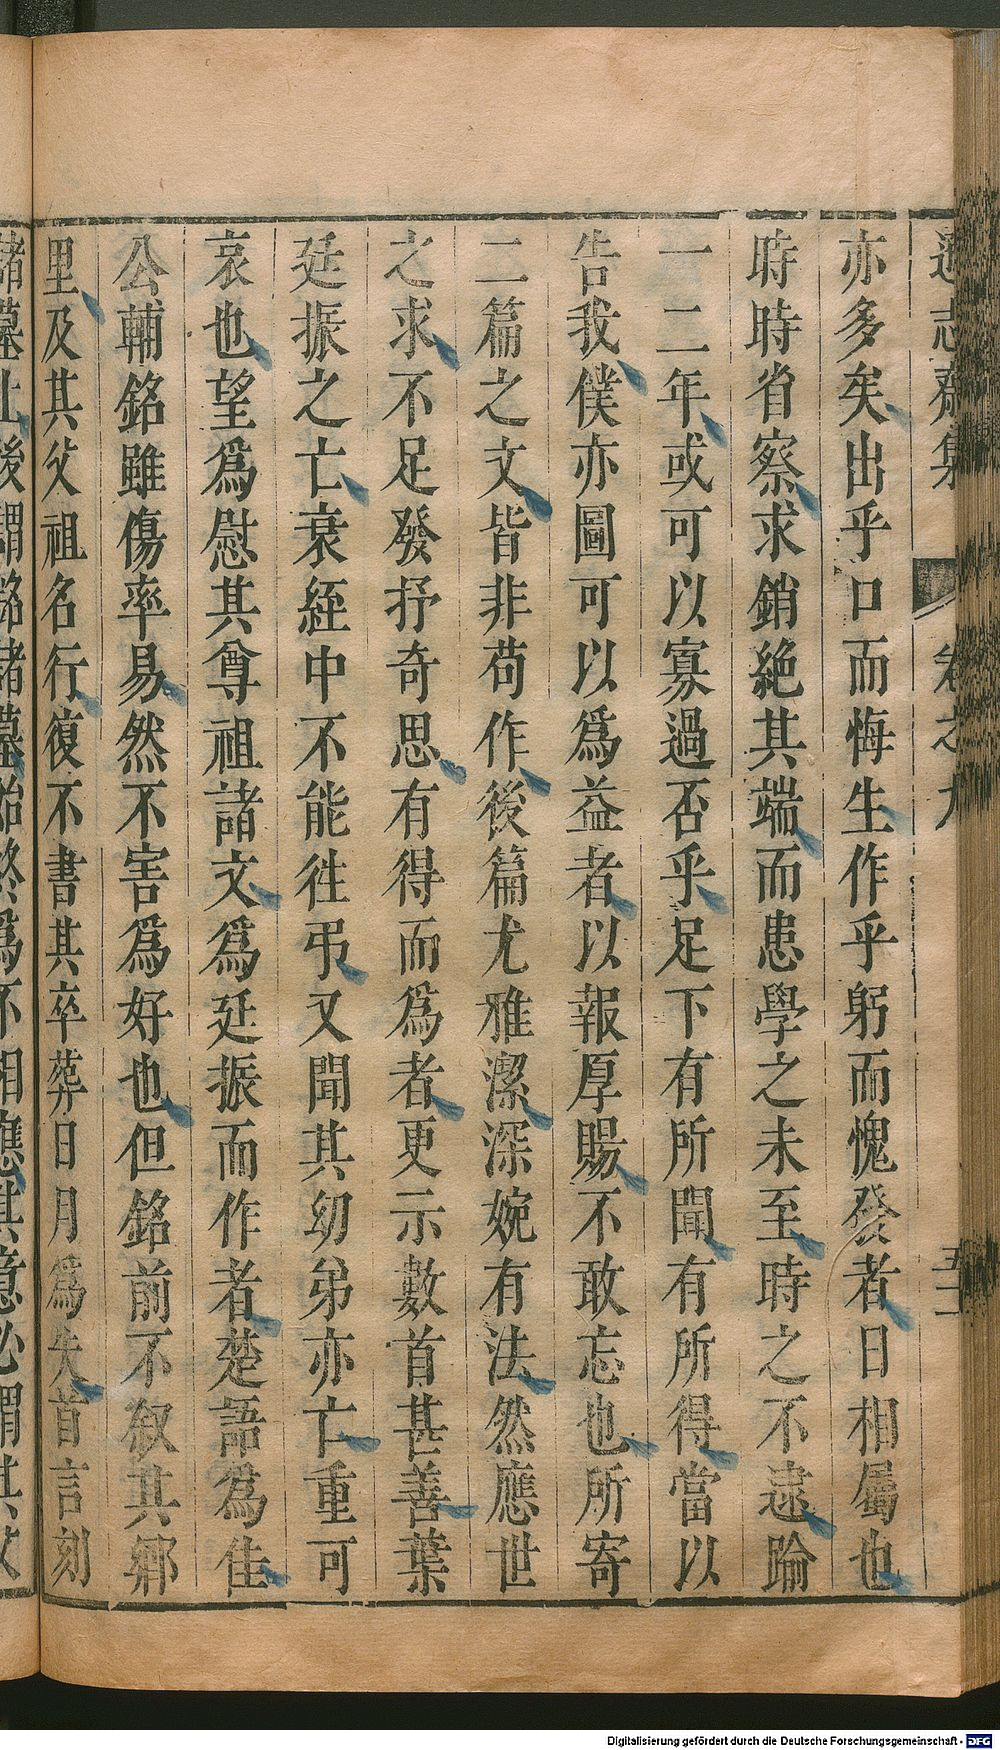 遜志齋集 卷之九
亦多矣出乎口而悔生作乎躬而愧發者日相屬也
時時省察求銷絕其端而患學之未至時之不逮踰
一二年或可以寡過否乎足下有所聞有所得當以
告我僕亦圖可以爲益者以報厚賜不敢忘也所寄
二篇之文皆非苟作後篇尤雅潔深婉有法然應世
之求不足發抒奇思有得而爲者更示數首甚善葉
廷振之亡衰絰中不能徃弔又聞其幼弟亦亡重可
哀也望爲慰其尊祖諸文爲廷振而作者楚語爲佳
公輔銘雖傷率易然不害爲好也但銘前不叙其鄉
里及其父祖名行復不書其卒葬日月爲失首言刻
諸墓上後謂銘諸墓始終爲不相應其意必謂其文
Digitalisierung gefördert durch die Deutsche Forschungsgemeinschaft - DFG